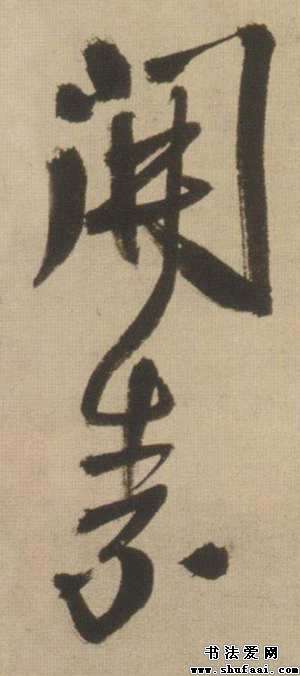 開素
书法爱网
www.shufaai.com